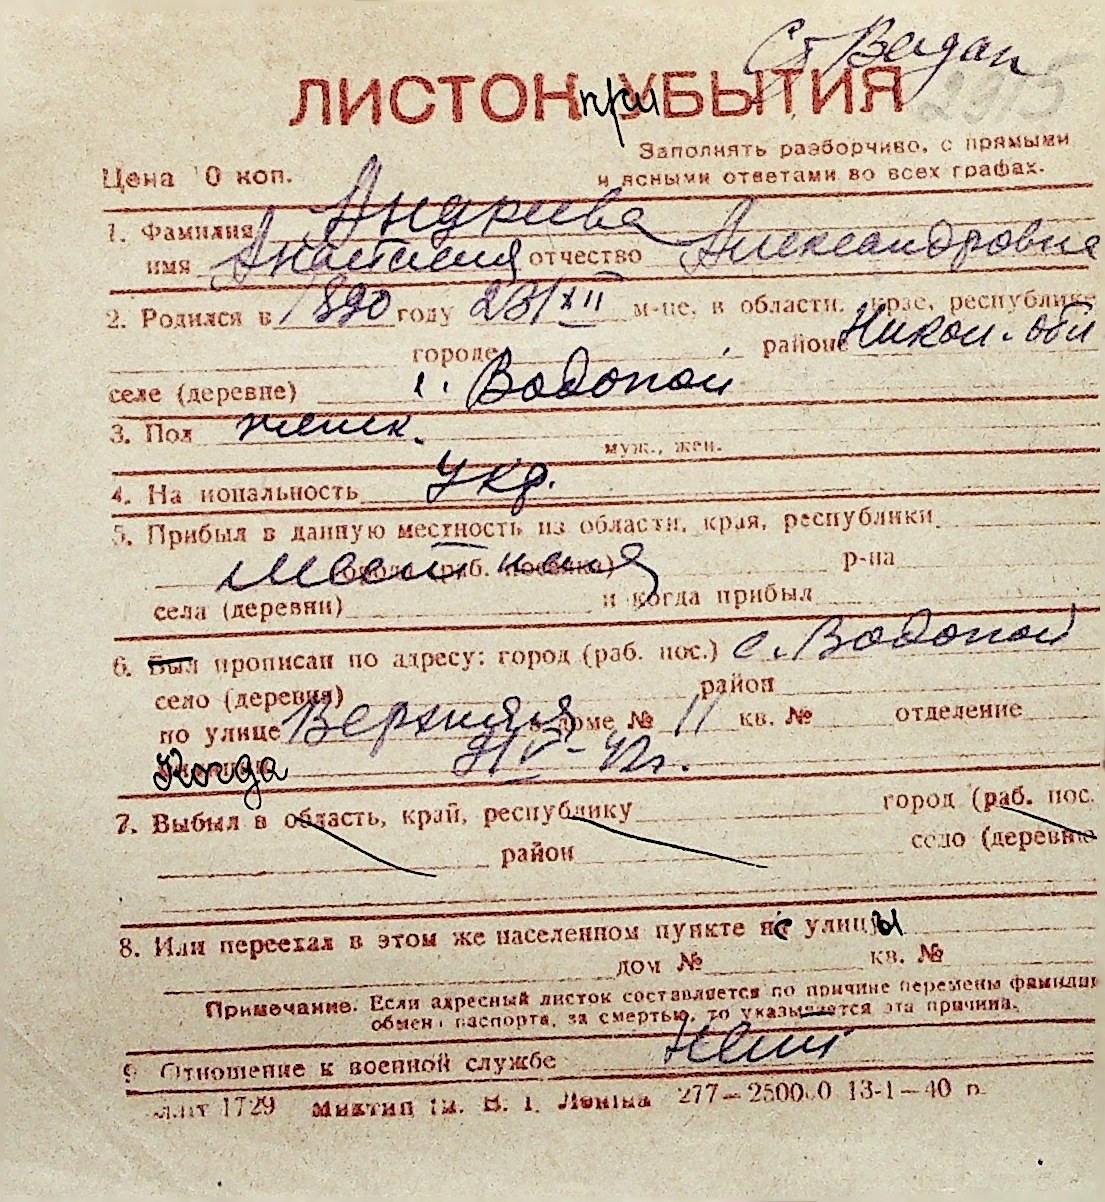 Ст Водоп
ЛИСТОК при УБЫТИЯ
2915
Заполнять разборчиво, с прямыми
Цена 10 коп. и ясными ответами во всех графах.
1. Фамилия Андреева
имя Анастасия отчество Александровна
2. Родился в 1890 году 23/XII м-це, в области, крае, республике
городе районе Никол. обл
селе (деревне) с. Водопой
3. Пол женск.
муж., жен.
4. Национальность Укр.
5. Прибыл в данную местность из области, края, республики
местная города (раб. поселка) р-на
села (деревни) и когда прибыл
6. Был прописан по адресу: город (раб. пос.) с. Водопой
село (деревня) район
по улице Верхняя в доме № 11 кв. № отделение
Когда 9/V-42г.
7. Выбыл в область, край, республику город (раб. пос.
район село (деревню
8. Или переехал в этом же населенном пункте с улицы
дом № кв. №
Примечание. Если адресный листок составляется по причине перемены фамилии
обмена паспорта, за смертью, то указывается эта причина.
9 Отношение к военной службе нет
1729 Миктип ім. В. І. Леніна 277—250000 13-1—40 р.